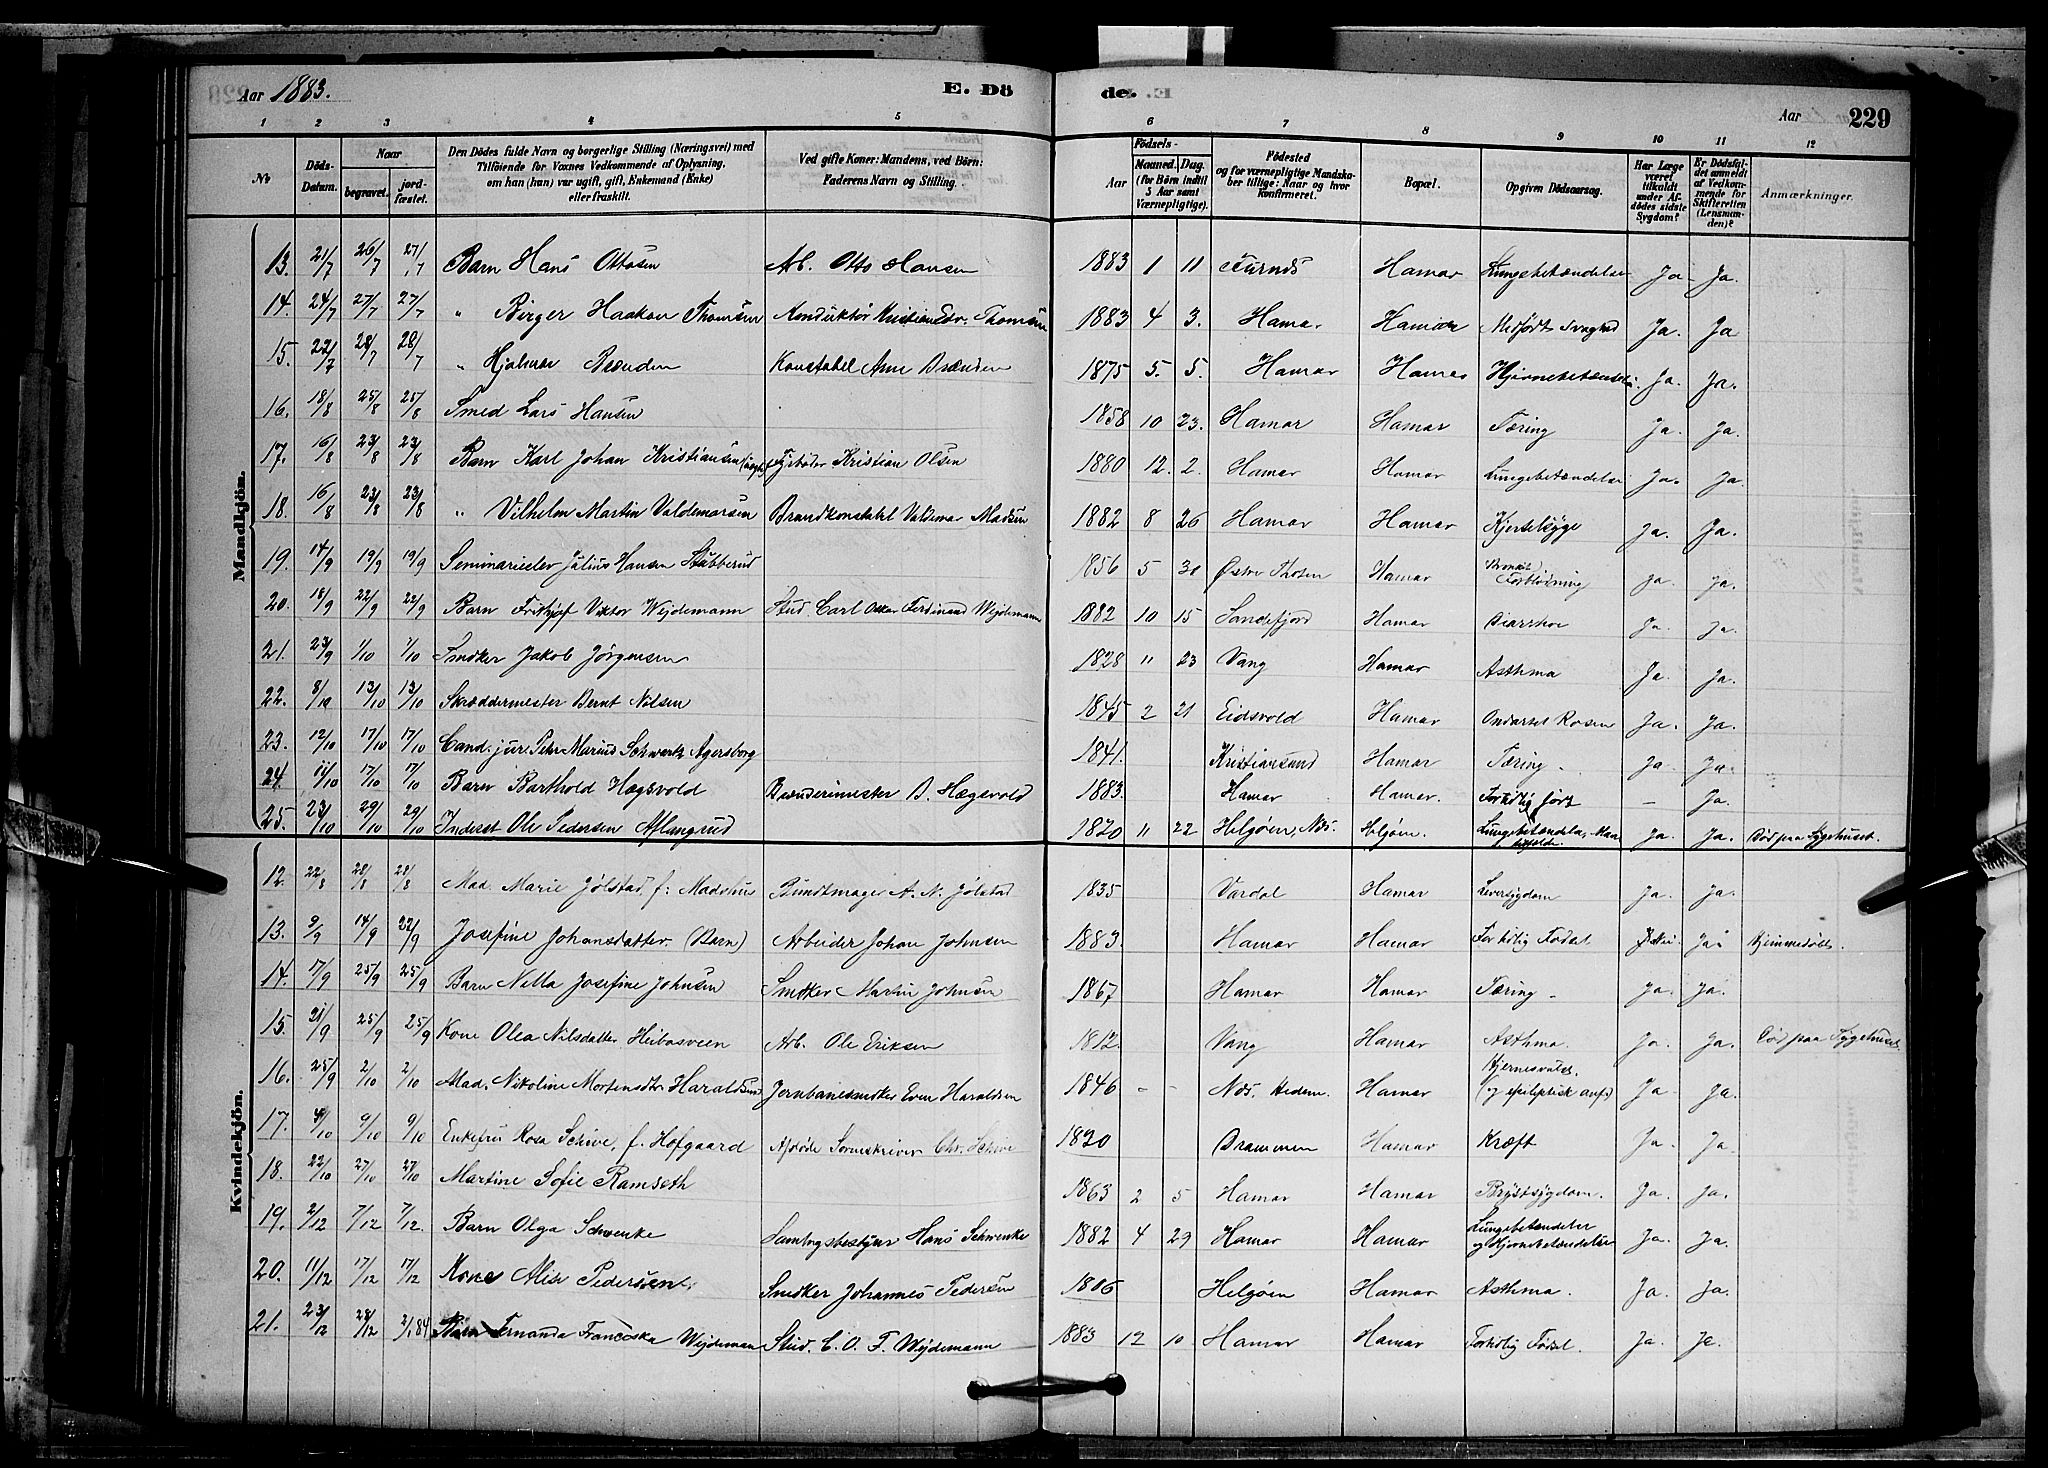 Aar 1883. E. Dö de. Aar 229
1 2 3 4 5 6 7 8 9 10 11 12
No Döds-Datum. Naar begravet. jordfæstet. Den Dödes fulde Navn og borgerlige Stilling (Næringsvei) med Tilföiende for Voxnes Vedkommende af Oplysning, om han (hun) var ugift, gift, Enkemand (Enke) eller fraskilt. Ved gifte Koner: Mandens, ved Börn: Faderens Navn og Stilling. Födsels- Aar Maaned. Dag. (for Börn indtil 5 Aar samt Værnepligtige). Födested og for værnepligtige Mandskaber tillige: Naar og hvor konfirmeret. Bopæl. Opgiven Dödsaarsag. Har Læge været tilkaldt under Afdödes sidste Sygdom? Er Dödsfaldet anmeldt af Vedkommende for Skifteretten (Lensmanden)? Anmærkninger.
Mandkjön.
13. 21/7 26/7 27/7 Barn Hans Ottosen Arb. Otto Hansen 1883 1 11 Furnæs Hamar Lungebetændelse Ja Ja.
14. 24/7 27/7 27/7 " Birger Haakon Thomsen Konduktør Kristian Edv. Thomsen 1883 4 3. Hamar Hamar Medfødt Svaghed Ja. Ja
15. 22/7 28/7 28/7 " Hjalmar Brænden Konstabel Arne Brænden 1875 5. 5. Hamar Hamar Hjernebetændelse. Ja. Ja.
16. 18/8 25/8 25/8 Smed Lars Hansen 1858 10 23. Hamar Hamar Tæring Ja. Ja.
17. 16/8 23/8 23/8 Barn Karl Johan Kristiansen Fyrbøder Kristian Olsen 1880 12. 2. Hamar Hamar Lungebetændelse Ja. Ja.
18. 16/8 23/8 23/8 " Vilhelm Martin Valdemarsen Brandkonstabel Valdemar Madsen 1882 8 26 Hamar Hamar Kjertelsyge Ja. Ja.
19. 14/9 19/9 19/9 Seminarieelev Julius Hansen Stubberud 1856 5 30 Østre Thoten Hamar Forblødning Ja. Ja.
20. 18/9 22/9 22/9 Barn Frithjof Viktor Wejdemann Stud. Carl Oskar Ferdinand Wejdemann 1882 10 15 Sandefjord Hamar Diarrhoe Ja. Ja.
21. 23/9 1/10 1/10 Snedker Jakob Jørgensen 1828 11 23 Vang Hamar Asthma Ja. Ja.
22. 8/10 13/10 13/10 Skræddermester Bernt Nilsen 1845 2 21 Eidsvold Hamar Ondartet Rosen Ja. Ja.
23. 12/10 17/10 17/10 Cand. jur. Peter Marius Schwartz Agersborg 1841. Kristiansund Hamar Tæring Ja Ja.
24. 11/10 17/10 17/10 Barn Barthold Hægsvold Brænderimester B. Hægsvold 1883. Hamar Hamar. Fortidlig født – Ja.
25. 23/10 29/10 29/10 Inderst Ole Pedersen Aflangrud 1820 11 22 Helgøen, Næs. Helgøen. Lungebetændelse, Ja Ja. Død paa Sygehuset.
Kvindekjön.
12. 22/8 28/8 28/8 Mad. Marie Jølstad, f. Buntmager A. N. Jølstad 1835 Vardal Hamar Leversygdom Ja. Ja.
13. 9/9 14/9 22/9 Josefine Johansdatter (Barn) Arbeider Johan Johnsen 1883. Hamar Hamar Fortidlig Fødsel Nei. Ja. Hjemmedøbt.
14. 17/9 25/9 25/9 Barn Nella Josefine Johnsen Snedker Martin Johnsen 1867 Hamar Hamar Tæring Ja. Ja.
15. 21/9 25/9 25/9 Kone Olea Nilsdatter Heibosveen Arb. Ole Eriksen 1812. Vang Hamar Asthma. Ja. Ja. Død paa Sygehuset.
16. 25/9 2/10 2/10 Mad. Nikoline Mortensdtr. Haraldsen Jernbanesnedker Even Haraldsen 1846 – – Næs. Hedem. Hamar (og epileptisk anf.) Ja Ja.
17. 4/10 9/10 9/10 Enkefru Rosa Schive, f. Hofgaard Afdøde Sorenskriver Chr. Schive 1820 Drammen Hamar Kræft Ja. Ja.
18. 22/10 27/10 27/10 Martine Sofie Ramseth 1863 2 5 Hamar Hamar Brystsygdom. Ja. Ja.
19. 2/12 7/12 7/12. Barn Olga Schwenke Samlagsbestyrer Hans Schwenke 1882 4 29 Hamar Hamar Lungebetændelse og Hjernebetændelse Ja. Ja.
20. 11/12 17/12 17/12 Kone Alis Pedersen. Snedker Johannes Pedersen 1806 Helgøen Hamar Asthma. Ja. Ja.
21. 23/12 28/12 2/1 84 Barn Fernanda Franciska Wejdeman Stud. C. O. F. Wejdemann 1883 12 10 Hamar Hamar Fortidlig Fødsel. Ja. Ja.